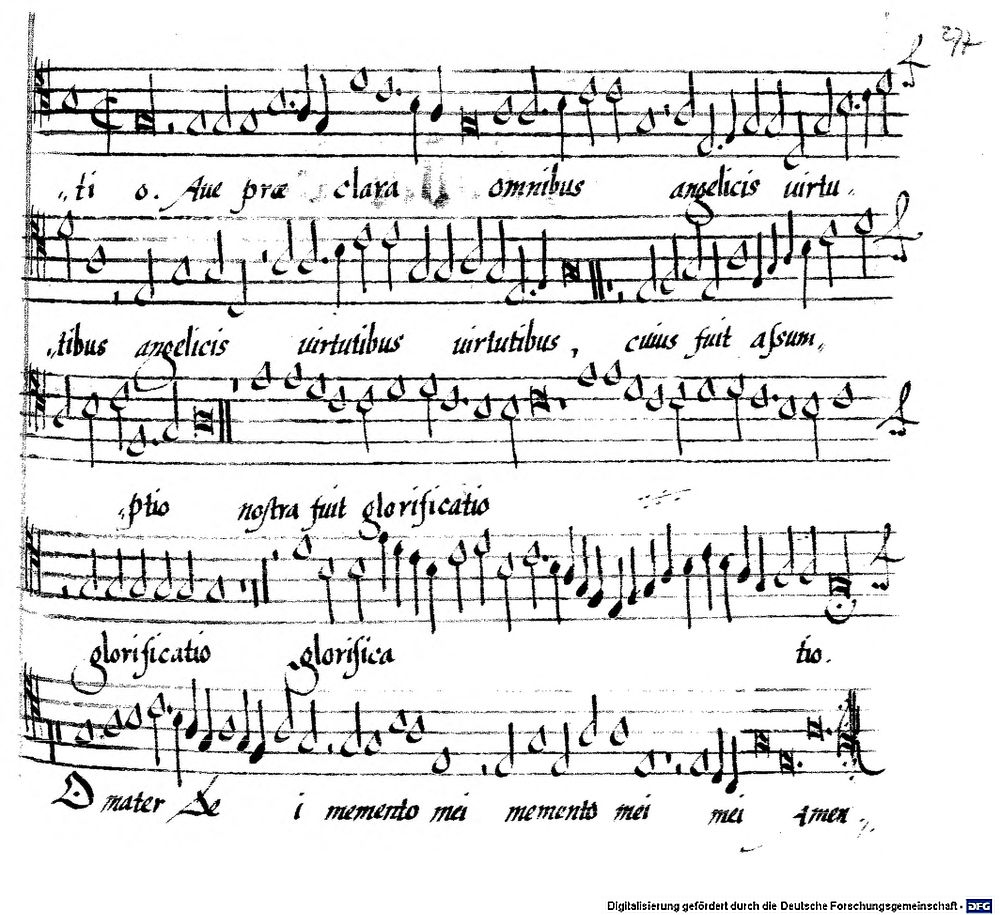 277
ti o. Aue præ clara omnibus angelicis uirtu
tibus angelicis uirtutibus uirtutibus, cuius fuit assum
ptio nostra fuit glorificatio
glorificatio glorifica tio.
O mater De i memento mei memento mei mei Amen
Digitalisierung gefördert durch die Deutsche Forschungsgemeinschaft - DFG